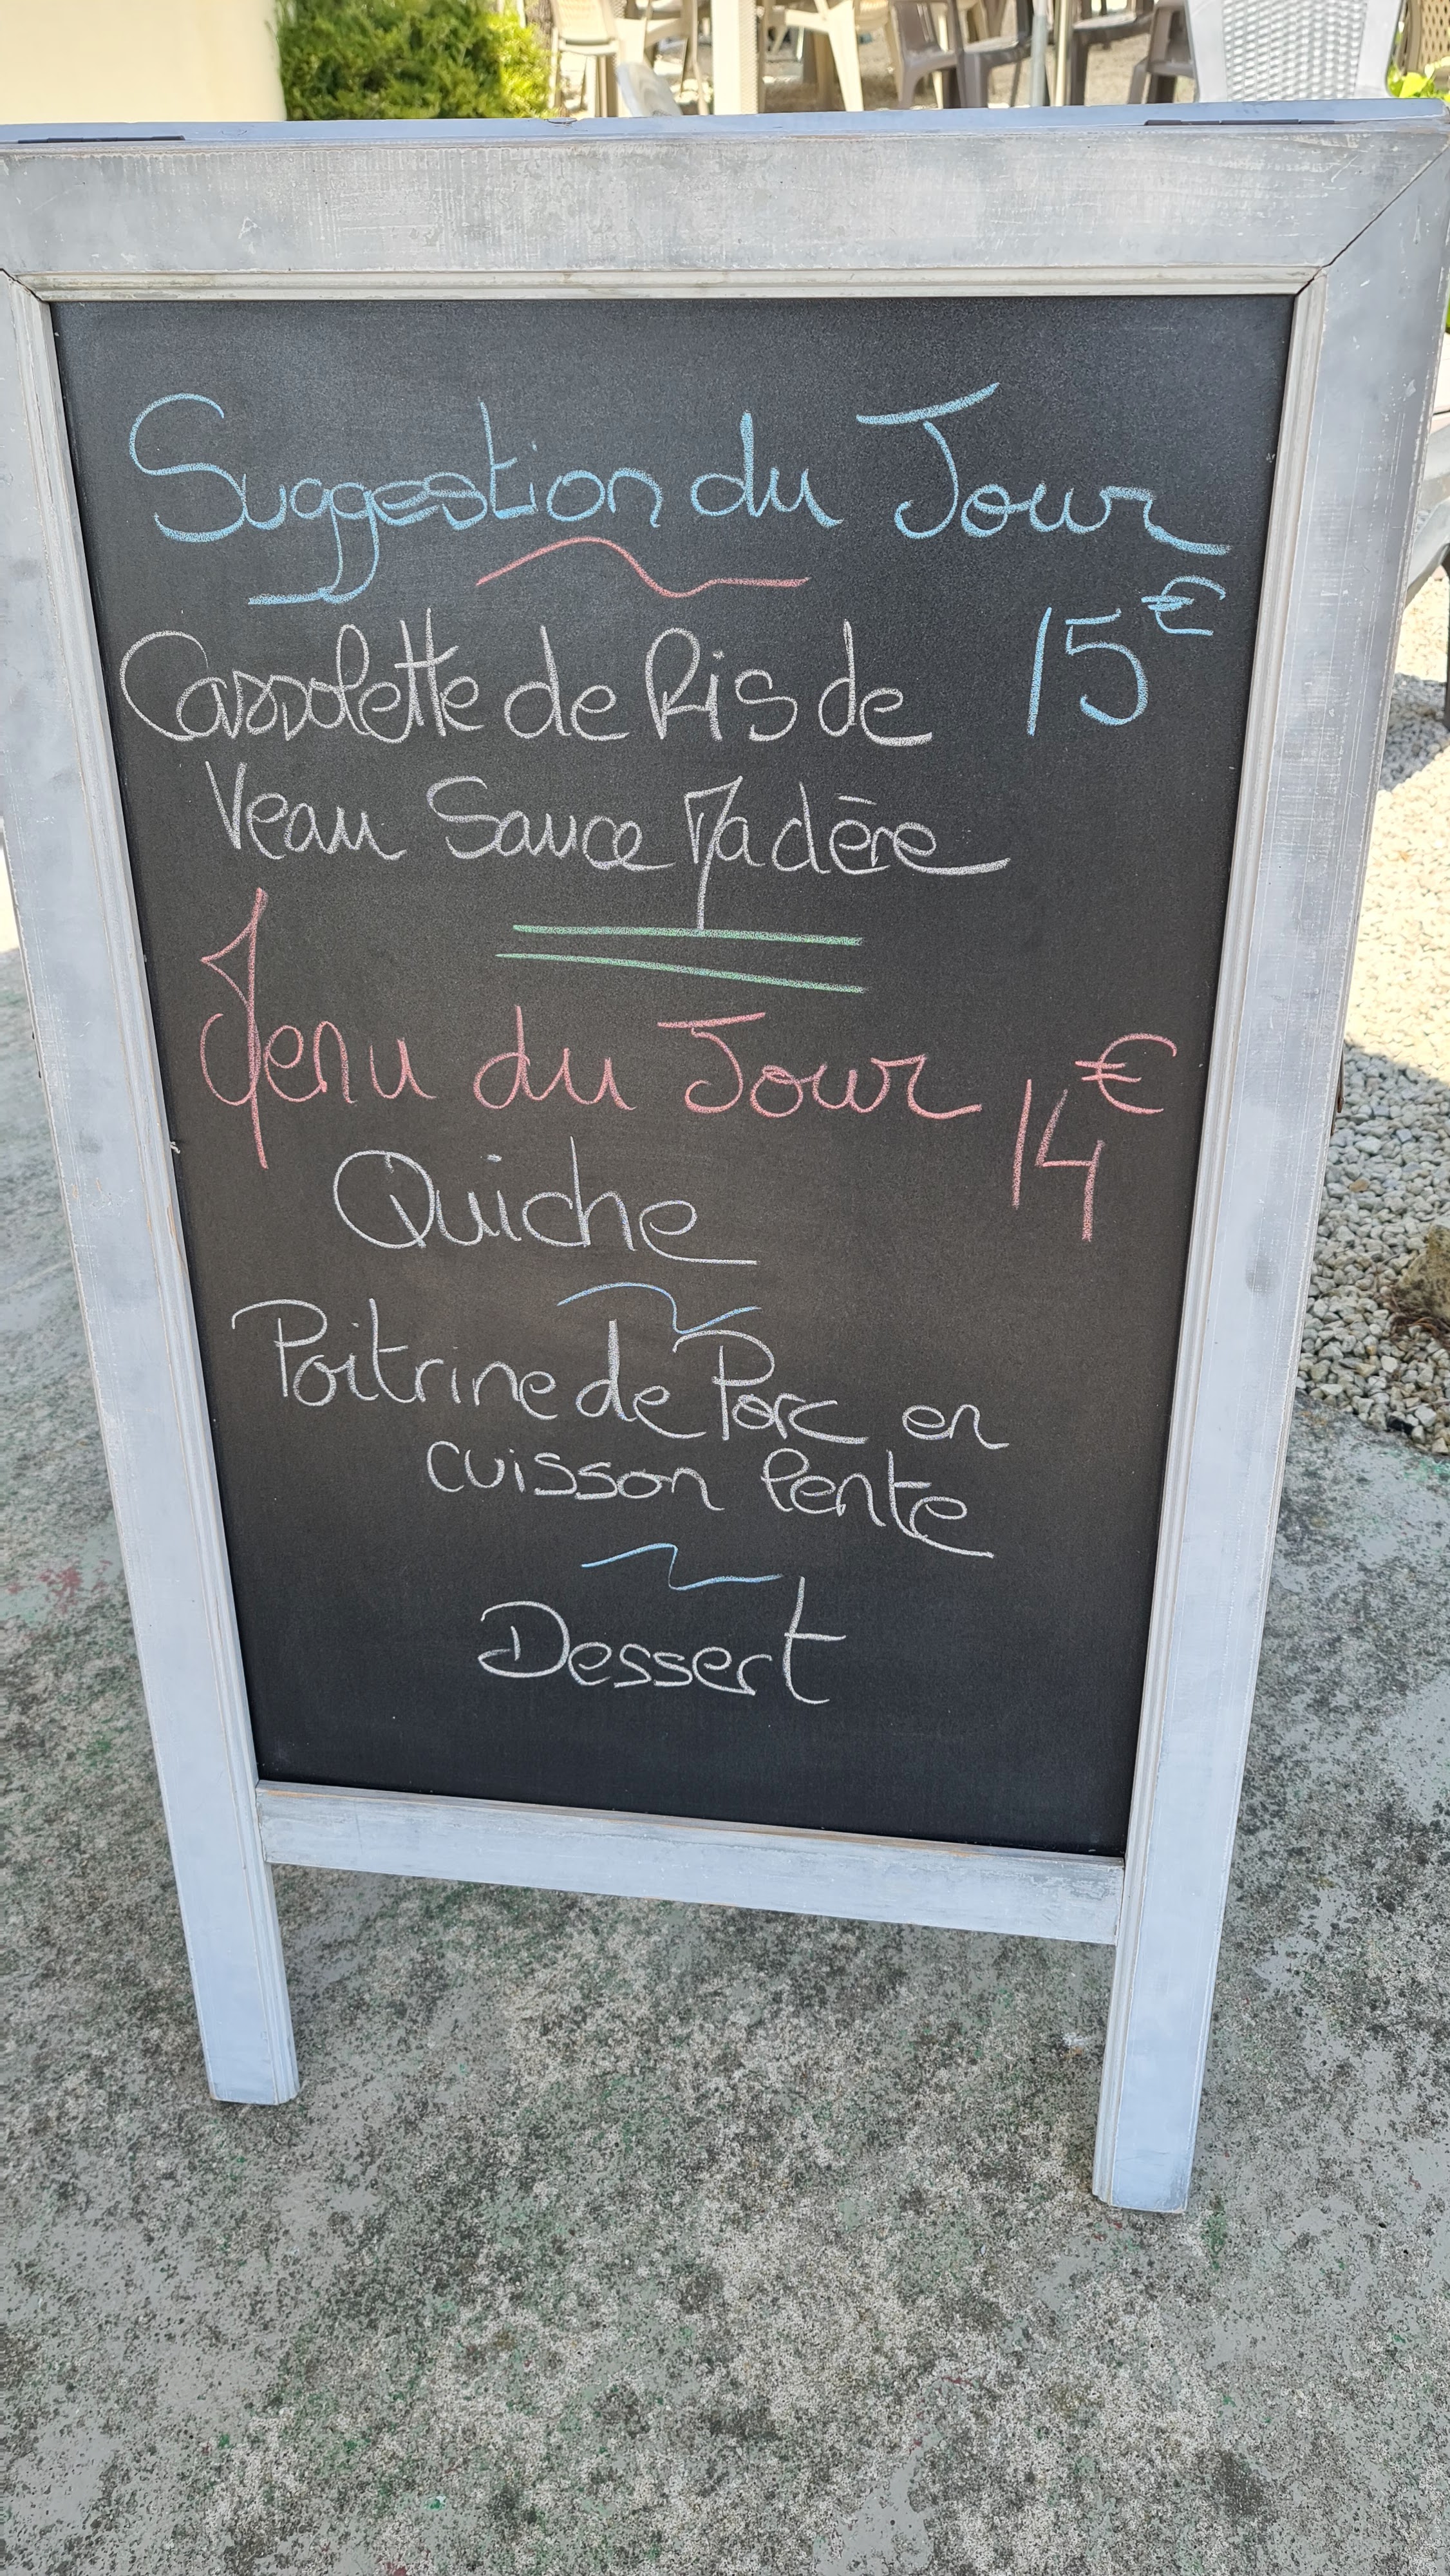 Suggestion du Jour
15€
Cassolette de Ris de
Veau Sauce Madère
Menu du Jour 14€
Quiche
Poitrine de Porc en
cuisson lente
Dessert